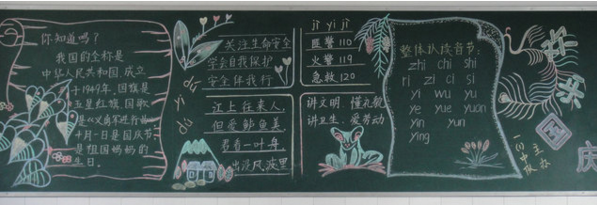 你知道吗？
我国的全称是
中华人民共和国，成立
于1949年，国旗是
五星红旗，国歌
是《义勇军进行曲》
十月一日是国庆节
是祖国妈妈的
生日。
dú yì dú
关注生命安全
学会自我保护
安全伴我行
江上往来人，
但爱鲈鱼美。
君看一叶舟，
出没风波里
jì yi jì
匪警110
火警119
急救120
讲文明、懂礼貌
讲卫生、爱劳动
整体认读音节：
zhi chi shi
ri zi ci si
yi wu yu
ye yue yuan
yin yun
ying
欢乐国庆
一(1)中队
主办